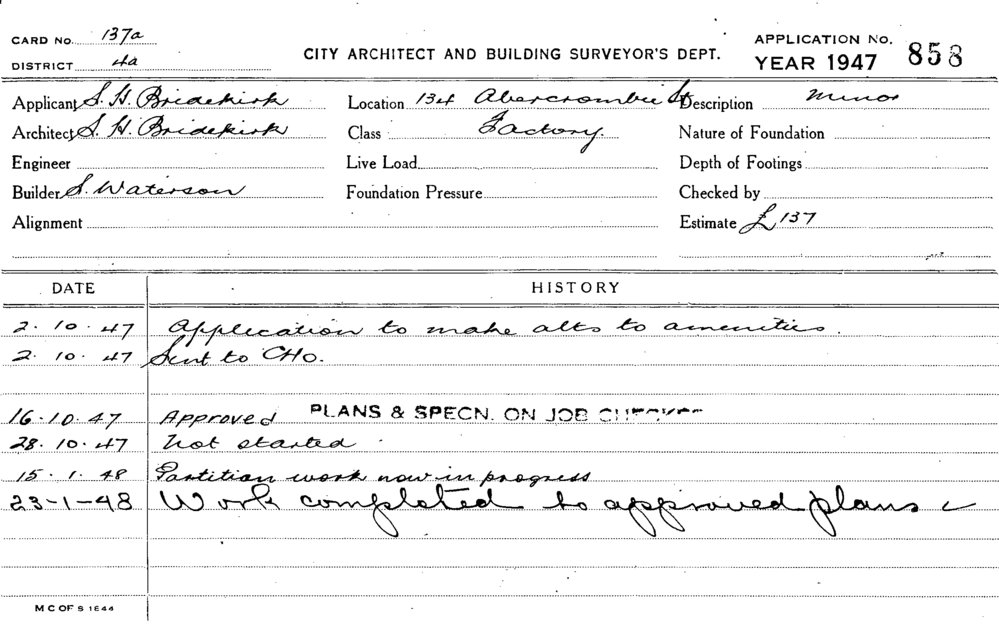 CARD No. 137a
CITY ARCHITECT AND BUILDING SURVEYOR'S DEPT.
APPLICATION No. 858
DISTRICT 4a
YEAR 1947
Applicant S. H. Bridekirk Location 134 Abercrombie St Description Minor
Architect S. H. Bridekirk Class Factory. Nature of Foundation
Engineer Live Load Depth of Footings
Builder S. Waterson Foundation Pressure Checked by
Alignment Estimate £137
DATE HISTORY
2.10.47 Application to make alts to amenities.
2.10.47 Sent to CHO.
16.10.47 Approved PLANS & SPECN. ON JOB CHECKED
28.10.47 Not started
15.1.48 Partition work now in progress
23-1-48 Work completed to approved plans
M C OF S 1644